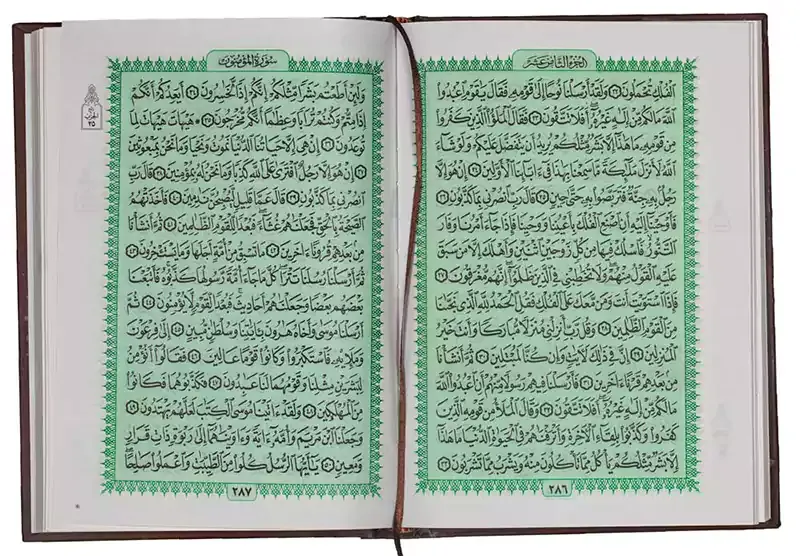 الجزء الثامن عشر
ٱلۡفُلۡكِ تُحۡمَلُونَ ٢٢ وَلَقَدۡ أَرۡسَلۡنَا نُوحًا إِلَىٰ قَوۡمِهِۦ فَقَالَ يَٰقَوۡمِ ٱعۡبُدُواْ
ٱللَّهَ مَا لَكُم مِّنۡ إِلَٰهٍ غَيۡرُهُۥٓۚ أَفَلَا تَتَّقُونَ ٢٣ فَقَالَ ٱلۡمَلَؤُاْ ٱلَّذِينَ كَفَرُواْ
مِن قَوۡمِهِۦ مَا هَٰذَآ إِلَّا بَشَرٞ مِّثۡلُكُمۡ يُرِيدُ أَن يَتَفَضَّلَ عَلَيۡكُمۡ وَلَوۡ شَآءَ
ٱللَّهُ لَأَنزَلَ مَلَٰٓئِكَةٗ مَّا سَمِعۡنَا بِهَٰذَا فِيٓ ءَابَآئِنَا ٱلۡأَوَّلِينَ ٢٤ إِنۡ هُوَ إِلَّا
رَجُلُۢ بِهِۦ جِنَّةٞ فَتَرَبَّصُواْ بِهِۦ حَتَّىٰ حِينٖ ٢٥ قَالَ رَبِّ ٱنصُرۡنِي بِمَا كَذَّبُونِ ٢٦
فَأَوۡحَيۡنَآ إِلَيۡهِ أَنِ ٱصۡنَعِ ٱلۡفُلۡكَ بِأَعۡيُنِنَا وَوَحۡيِنَا فَإِذَا جَآءَ أَمۡرُنَا وَفَارَ
ٱلتَّنُّورُ فَٱسۡلُكۡ فِيهَا مِن كُلّٖ زَوۡجَيۡنِ ٱثۡنَيۡنِ وَأَهۡلَكَ إِلَّا مَن سَبَقَ
عَلَيۡهِ ٱلۡقَوۡلُ مِنۡهُمۡۖ وَلَا تُخَٰطِبۡنِي فِي ٱلَّذِينَ ظَلَمُوٓاْ إِنَّهُم مُّغۡرَقُونَ ٢٧
فَإِذَا ٱسۡتَوَيۡتَ أَنتَ وَمَن مَّعَكَ عَلَى ٱلۡفُلۡكِ فَقُلِ ٱلۡحَمۡدُ لِلَّهِ ٱلَّذِي نَجَّىٰنَا
مِنَ ٱلۡقَوۡمِ ٱلظَّٰلِمِينَ ٢٨ وَقُل رَّبِّ أَنزِلۡنِي مُنزَلٗا مُّبَارَكٗا وَأَنتَ خَيۡرُ
ٱلۡمُنزِلِينَ ٢٩ إِنَّ فِي ذَٰلِكَ لَأٓيَٰتٖ وَإِن كُنَّا لَمُبۡتَلِينَ ٣٠ ثُمَّ أَنشَأۡنَا
مِنۢ بَعۡدِهِمۡ قَرۡنًا ءَاخَرِينَ ٣١ فَأَرۡسَلۡنَا فِيهِمۡ رَسُولٗا مِّنۡهُمۡ أَنِ ٱعۡبُدُواْ ٱللَّهَ
مَا لَكُم مِّنۡ إِلَٰهٍ غَيۡرُهُۥٓۚ أَفَلَا تَتَّقُونَ ٣٢ وَقَالَ ٱلۡمَلَأُ مِن قَوۡمِهِ ٱلَّذِينَ
كَفَرُواْ وَكَذَّبُواْ بِلِقَآءِ ٱلۡأٓخِرَةِ وَأَتۡرَفۡنَٰهُمۡ فِي ٱلۡحَيَوٰةِ ٱلدُّنۡيَا مَا هَٰذَآ
إِلَّا بَشَرٞ مِّثۡلُكُمۡ يَأۡكُلُ مِمَّا تَأۡكُلُونَ مِنۡهُ وَيَشۡرَبُ مِمَّا تَشۡرَبُونَ ٣٣
٢٨٦
سورة المؤمنون
وَلَئِنۡ أَطَعۡتُم بَشَرٗا مِّثۡلَكُمۡ إِنَّكُمۡ إِذٗا لَّخَٰسِرُونَ ٣٤ أَيَعِدُكُمۡ أَنَّكُمۡ
إِذَا مِتُّمۡ وَكُنتُمۡ تُرَابٗا وَعِظَٰمًا أَنَّكُم مُّخۡرَجُونَ ٣٥ ۞ هَيۡهَاتَ هَيۡهَاتَ لِمَا
تُوعَدُونَ ٣٦ إِنۡ هِيَ إِلَّا حَيَاتُنَا ٱلدُّنۡيَا نَمُوتُ وَنَحۡيَا وَمَا نَحۡنُ بِمَبۡعُوثِينَ
٣٧ إِنۡ هُوَ إِلَّا رَجُلٌ ٱفۡتَرَىٰ عَلَى ٱللَّهِ كَذِبٗا وَمَا نَحۡنُ لَهُۥ بِمُؤۡمِنِينَ ٣٨ قَالَ رَبِّ
ٱنصُرۡنِي بِمَا كَذَّبُونِ ٣٩ قَالَ عَمَّا قَلِيلٖ لَّيُصۡبِحُنَّ نَٰدِمِينَ ٤٠ فَأَخَذَتۡهُمُ
ٱلصَّيۡحَةُ بِٱلۡحَقِّ فَجَعَلۡنَٰهُمۡ غُثَآءٗۚ فَبُعۡدٗا لِّلۡقَوۡمِ ٱلظَّٰلِمِينَ ٤١ ثُمَّ أَنشَأۡنَا
مِنۢ بَعۡدِهِمۡ قُرُونًا ءَاخَرِينَ ٤٢ مَا تَسۡبِقُ مِنۡ أُمَّةٍ أَجَلَهَا وَمَا يَسۡتَـٔۡخِرُونَ ٤٣
ثُمَّ أَرۡسَلۡنَا رُسُلَنَا تَتۡرَاۖ كُلَّ مَا جَآءَ أُمَّةٗ رَّسُولُهَا كَذَّبُوهُۖ فَأَتۡبَعۡنَا
بَعۡضَهُم بَعۡضٗا وَجَعَلۡنَٰهُمۡ أَحَادِيثَۚ فَبُعۡدٗا لِّقَوۡمٖ لَّا يُؤۡمِنُونَ ٤٤ ثُمَّ
أَرۡسَلۡنَا مُوسَىٰ وَأَخَاهُ هَٰرُونَ بِـَٔايَٰتِنَا وَسُلۡطَٰنٖ مُّبِينٍ ٤٥ إِلَىٰ فِرۡعَوۡنَ
وَمَلَإِيْهِۦ فَٱسۡتَكۡبَرُواْ وَكَانُواْ قَوۡمًا عَالِينَ ٤٦ فَقَالُوٓاْ أَنُؤۡمِنُ
لِبَشَرَيۡنِ مِثۡلِنَا وَقَوۡمُهُمَا لَنَا عَٰبِدُونَ ٤٧ فَكَذَّبُوهُمَا فَكَانُواْ
مِنَ ٱلۡمُهۡلَكِينَ ٤٨ وَلَقَدۡ ءَاتَيۡنَا مُوسَى ٱلۡكِتَٰبَ لَعَلَّهُمۡ يَهۡتَدُونَ ٤٩
وَجَعَلۡنَا ٱبۡنَ مَرۡيَمَ وَأُمَّهُۥٓ ءَايَةٗ وَءَاوَيۡنَٰهُمَآ إِلَىٰ رَبۡوَةٖ ذَاتِ قَرَارٖ
وَمَعِينٖ ٥٠ يَٰٓأَيُّهَا ٱلرُّسُلُ كُلُواْ مِنَ ٱلطَّيِّبَٰتِ وَٱعۡمَلُواْ صَٰلِحًاۖ
الحزب
٣٥
٢٨٧